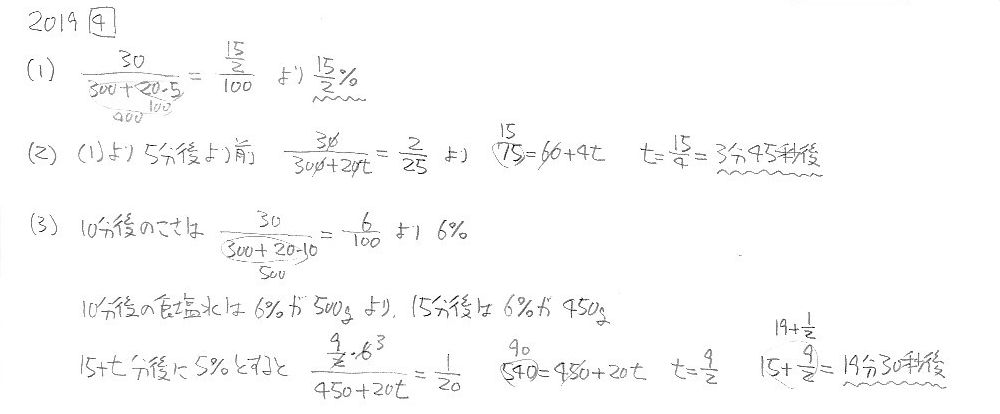 2019 4
(1) 30/(300+20·5) = (15/2)/100 より 15/2 %
100
400
(2) (1)より 5分後より前 30/(300+20t) = 2/25 より 75=60+4t t=15/4=3分45秒後
15
(3) 10分後のこさは 30/(300+20·10) = 6/100 より 6%
500
10分後の食塩水は 6%が500gより, 15分後は 6%が450g
19+1/2
15+t分後に5%とすると (9/2·6 3)/(450+20t) = 1/20 540=450+20t t=9/2 15+9/2=19分30秒後
90